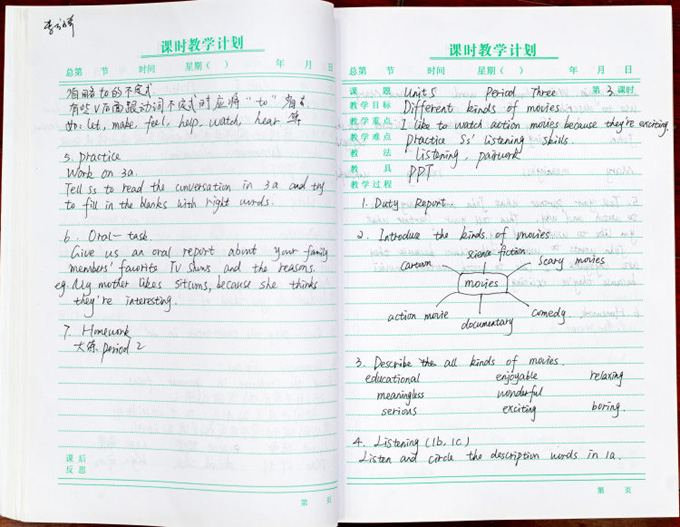 课时教学计划
总第 节 时间 星期( ) 年 月 日
省略to的不定式
有些V后面跟动词不定式时应将"to"省去
如: let, make, feel, help, watch, hear 等
5. practice
Work on 3a.
Tell ss to read the conversation in 3a and try
to fill in the blanks with right words.
6. Oral-task.
Give us an oral report about your family
members' favorite TV shows and the reasons.
eg. My mother likes sitcoms, because she thinks
they're interesting.
7. Homework
大练 period 2
课后
反思
第 页
课时教学计划
总第 节 时间 星期( ) 年 月 日
课 题 Unit 5 Period Three 第 3 课时
教学目标 Different kinds of movies.
教学重点 I like to watch action movies because they're exciting.
教学难点 Practice Ss' listening skills.
教 法 listening, pairwork
教 具 PPT
教学过程
1. Duty Report.
2. Introduce the kinds of movies
science fiction
cartoon scary movies
movies
action movie documentary comedy
3. Describe the all kinds of movies.
educational enjoyable relaxing
meaningless wonderful
serious exciting boring.
4. Listening (1b, 1c)
Listen and circle the description words in 1a.
第 页